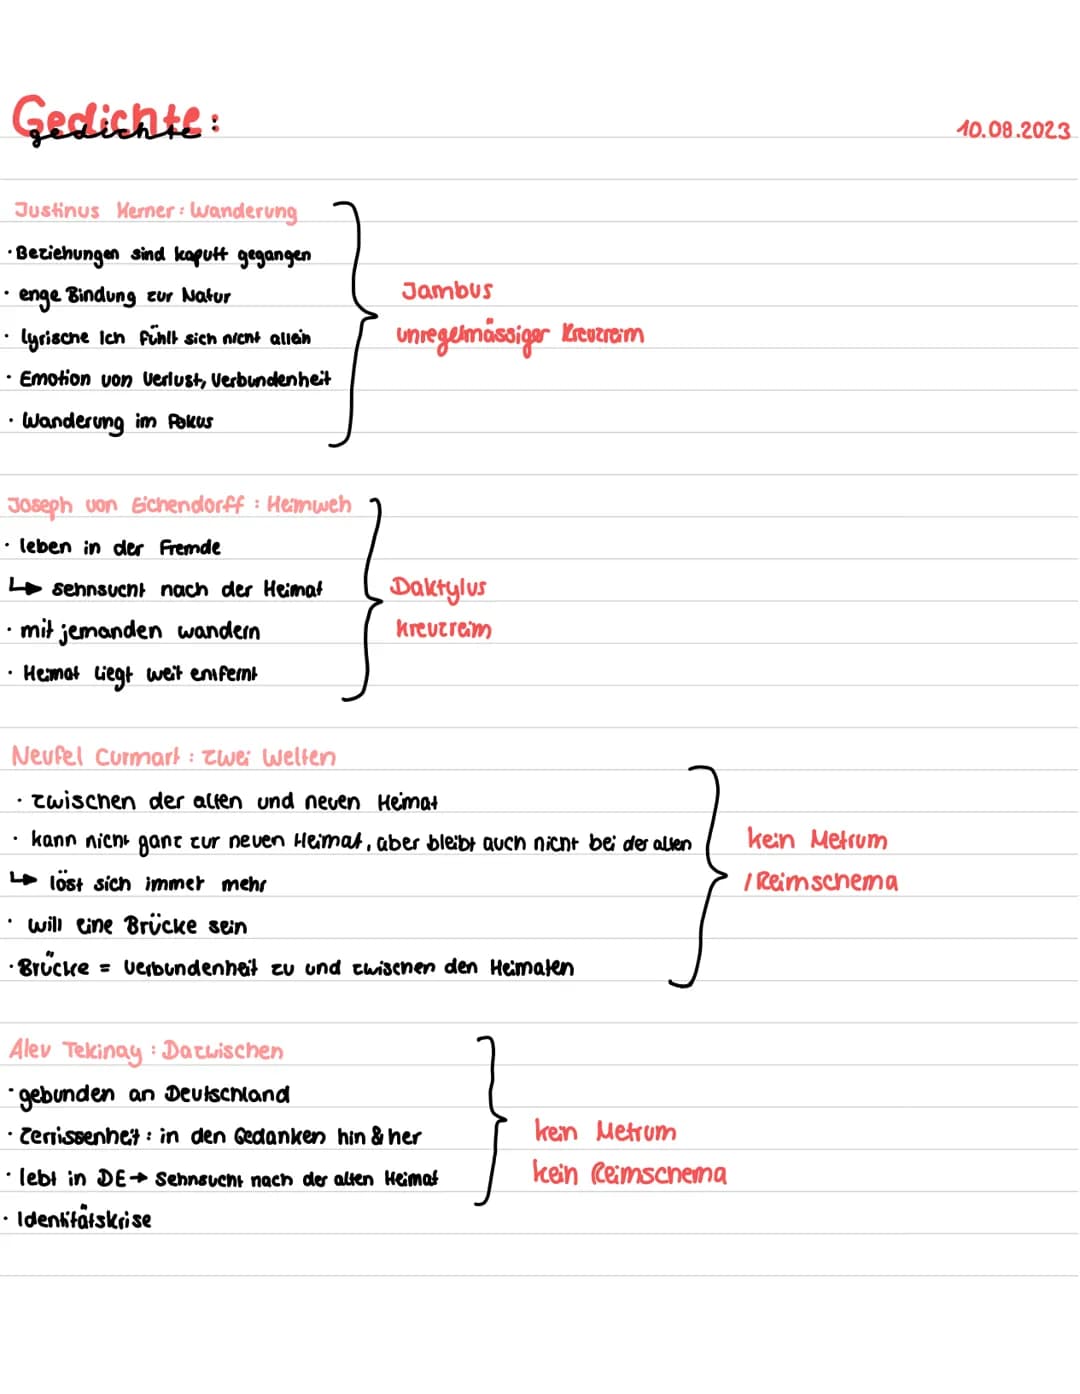 Gedichte:
gedichte
10.08.2023
Justinus Kerner: Wanderung
· Beziehungen sind kaputt gegangen
· enge Bindung zur Natur
· lyrische Ich fühlt sich nicht allein
· Emotion von Verlust, Verbundenheit
· Wanderung im Fokus
Jambus
unregelmässiger Kreuzreim
Joseph von Eichendorff: Heimweh
· leben in der Fremde
↳ sehnsucht nach der Heimat
· mit jemanden wandern
· Heimat liegt weit entfernt
Daktylus
kreuzreim
Neufel Curmart: Zwei Welten
· zwischen der alten und neuen Heimat
· kann nicht ganz zur neuen Heimat, aber bleibt auch nicht bei der alten
↳ löst sich immer mehr
· will eine Brücke sein
· Brücke = Verbundenheit zu und zwischen den Heimaten
kein Metrum
/Reimschema
Alev Tekinay: Dazwischen
· gebunden an Deutschland
· Zerrissenheit: in den Gedanken hin & her
· lebt in DE → Sehnsucht nach der alten Heimat
· Identitätskrise
kein Metrum
kein Reimschema